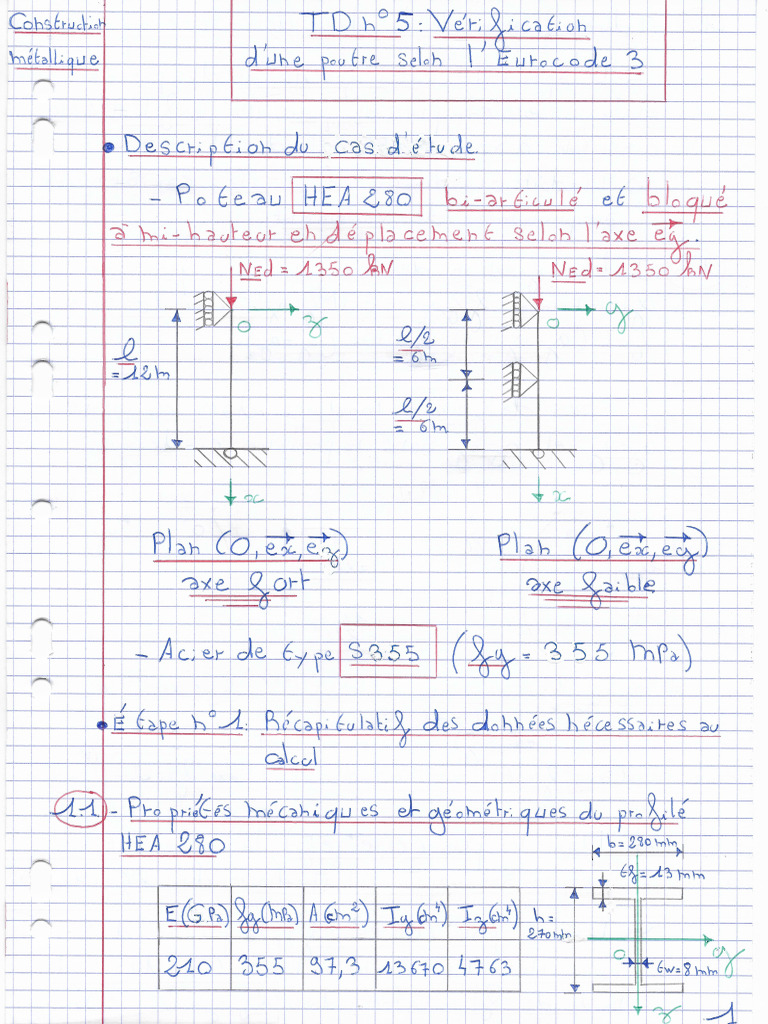 Construction
métallique
TD n° 5: Vérification
d'une poutre selon l'Eurocode 3
• Description du cas d'étude.
- Poteau HEA 280 bi-articulé et bloqué
à mi-hauteur en déplacement selon l'axe ey.
NEd = 1350 kN
NEd = 1350 kN
O z
O y
l
= 12m
l/2
= 6m
l/2
= 6m
x
x
Plan (O, ex, ez)
axe fort
Plan (O, ex, ey)
axe faible
- Acier de type S355 (fy = 355 MPa)
• Étape n° 1: Récapitulatif des données nécessaires au
calcul
1.1 - Propriétés mécaniques et géométriques du profilé
HEA 280
b = 280 mm
tf = 13 mm
E (GPa) fy (MPa) A (cm²) Iy (cm⁴) Iz (cm⁴)
210 355 97,3 13670 4763
h =
270 mm
O y
tw = 8 mm
z
1